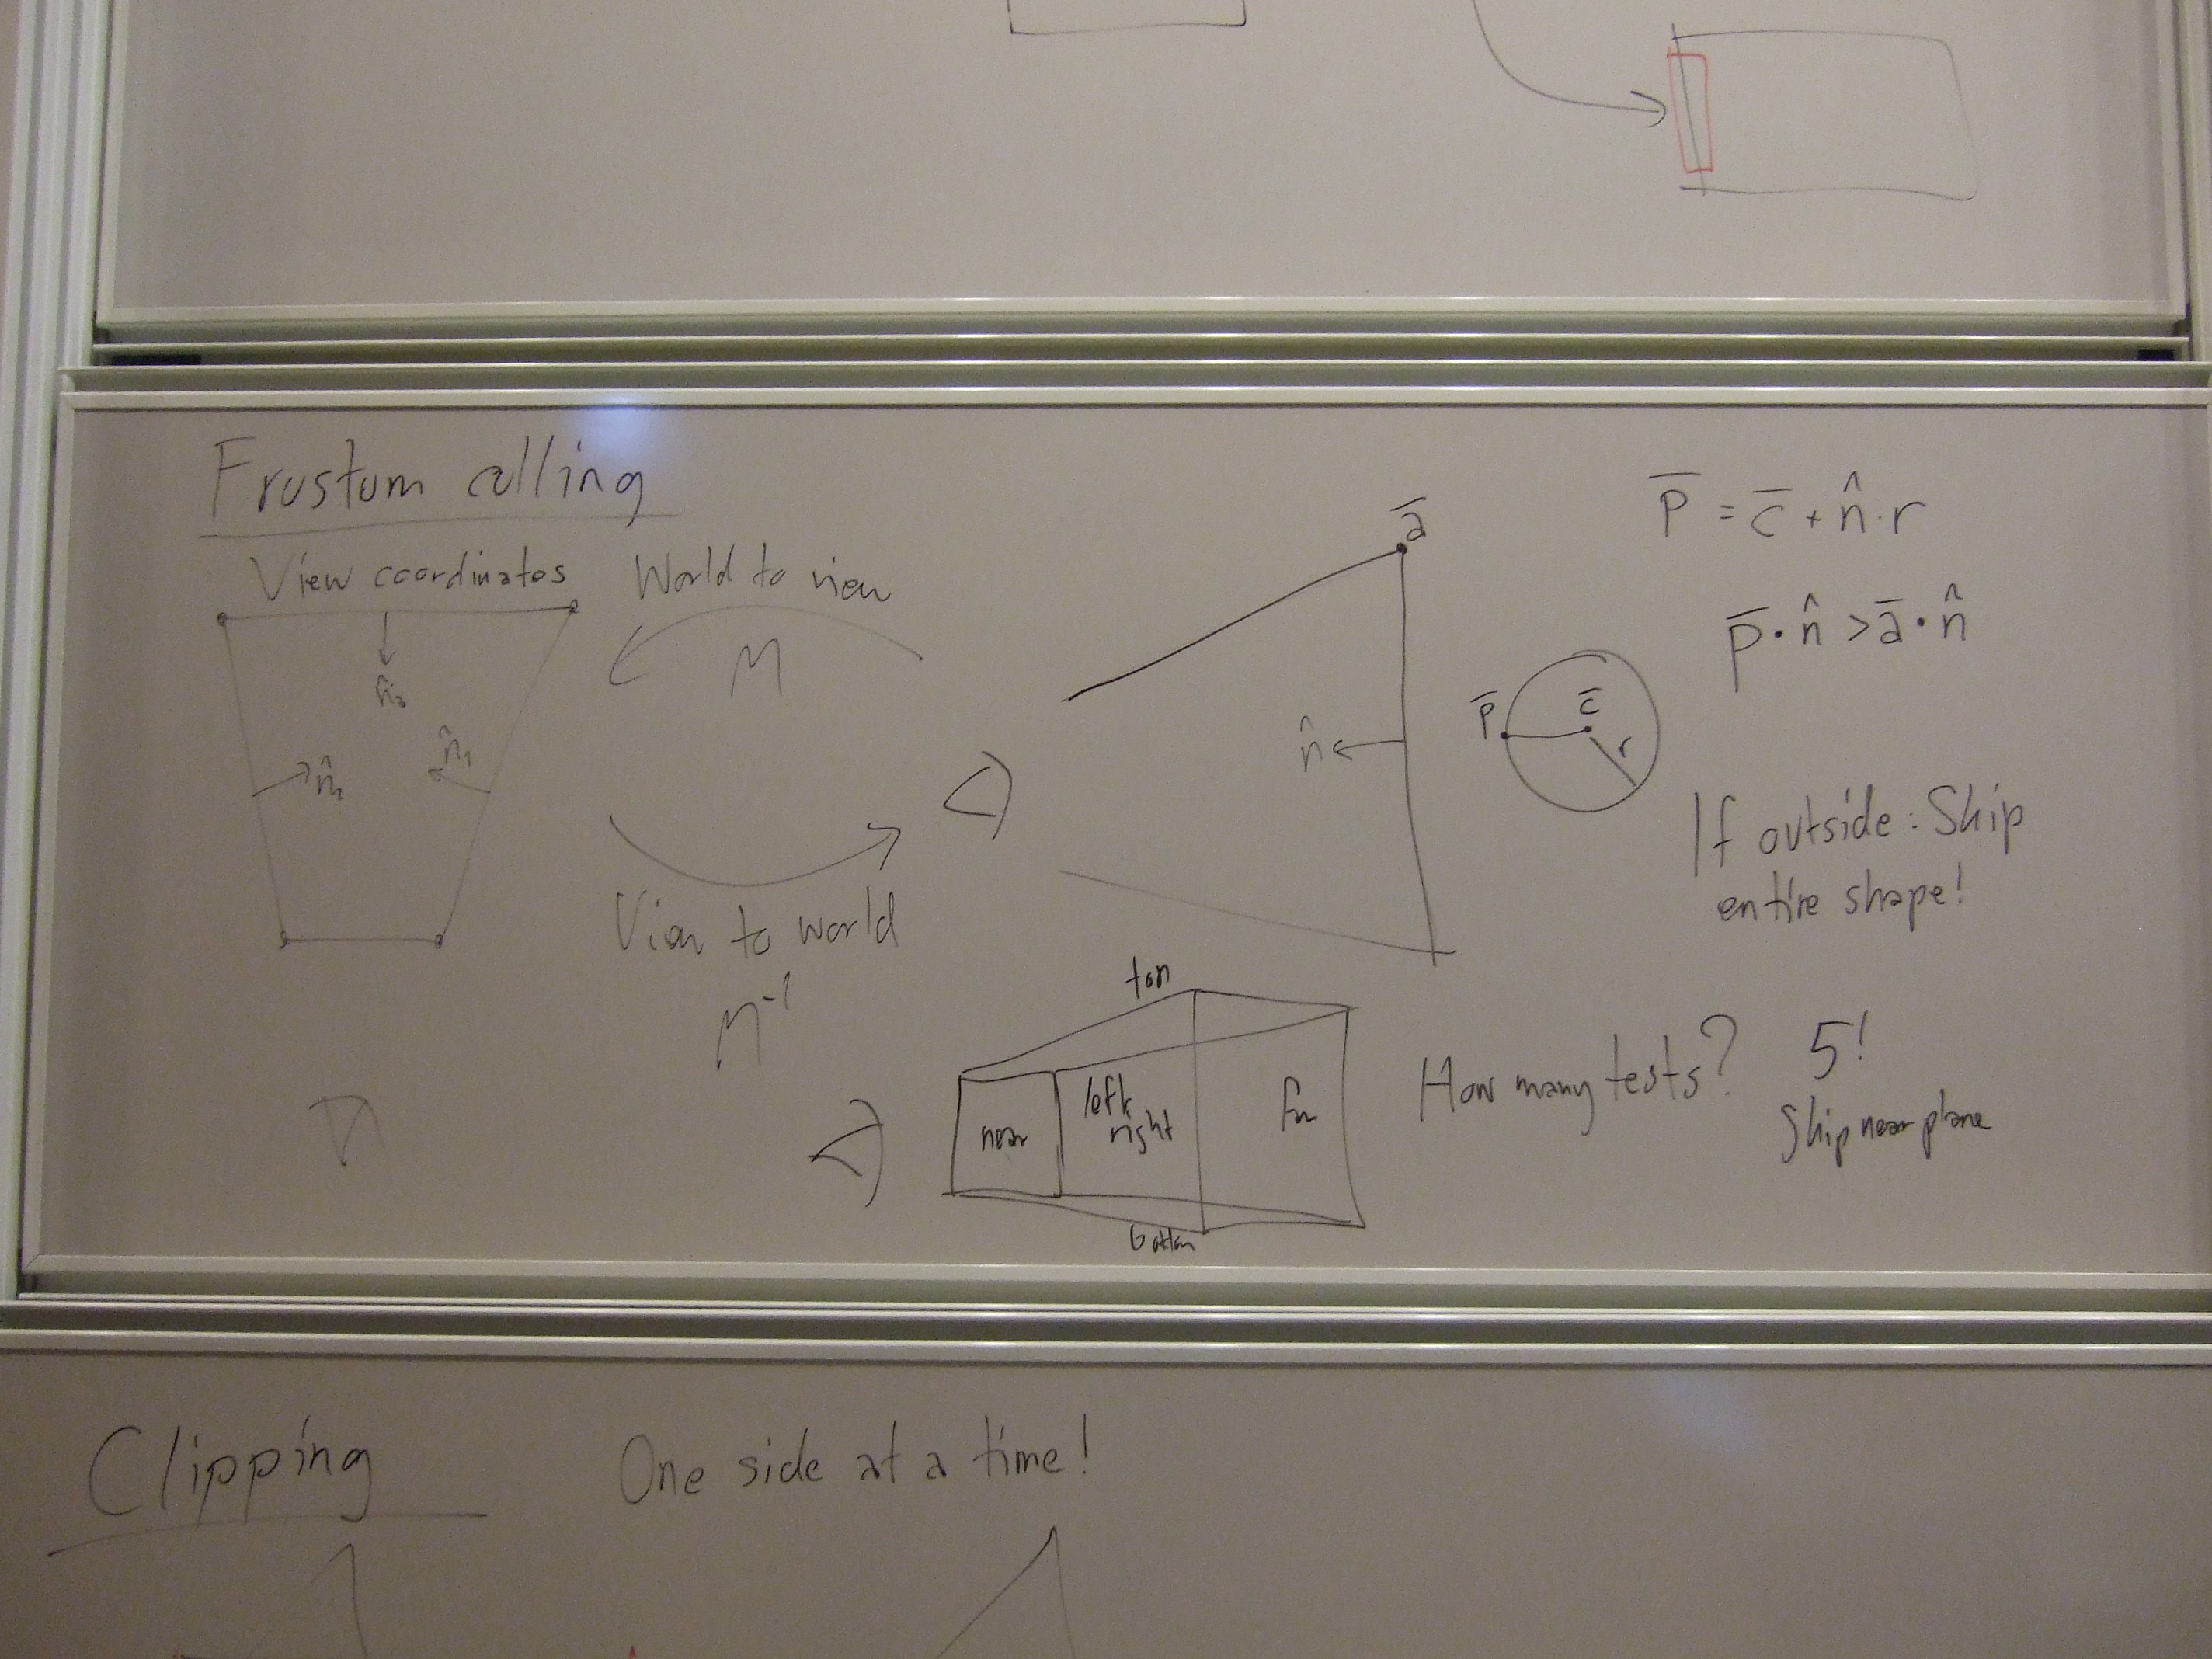 Frustum culling
View coordinates
n̂₃
n̂₂
n̂₁
World to view
M
View to world
M⁻¹
a̅
n̂
p̅
c̅
r
p̅ = c̅ + n̂·r
p̅·n̂ > a̅·n̂
If outside: Skip
entire shape!
top
near
left
right
far
bottom
How many tests? 5!
Skip near plane
Clipping
One side at a time!